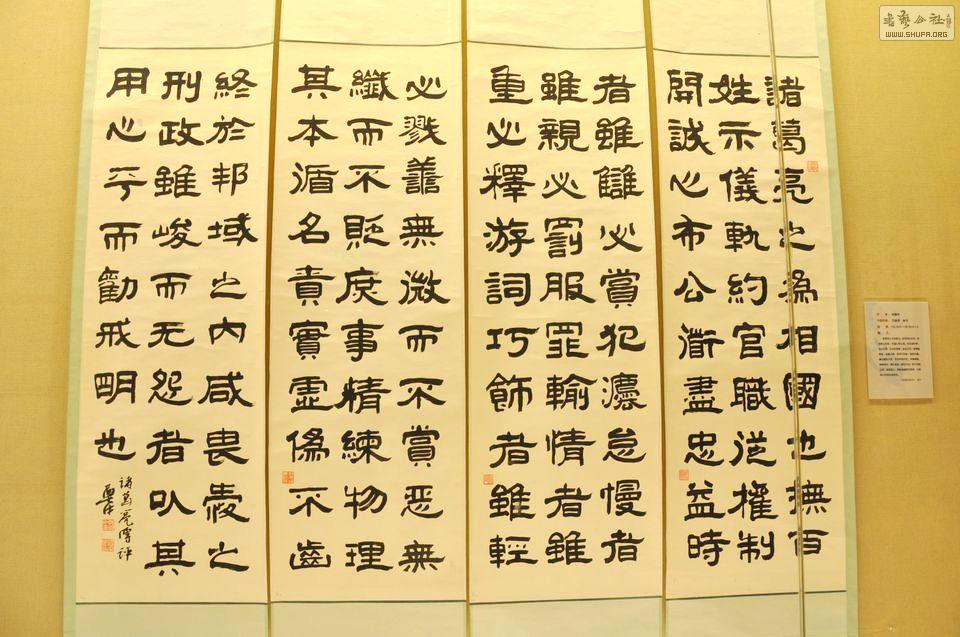 諸葛亮之為相國也撫百
姓示儀軌約官職從權制
開誠心布公衟盡忠益時
者雖讎必賞犯灋怠慢者
雖親必罰服罪輸情者雖
重必釋游詞巧飾者雖輕
必戮善無微而不賞惡無
纖而不貶庶事精練物理
其本循名責實虛偽不齒
終於邦域之內咸畏愛之
刑政雖峻而无怨者以其
用心平而勸戒明也
諸葛亮傳評
書藝公社
WWW.SHUFA.ORG